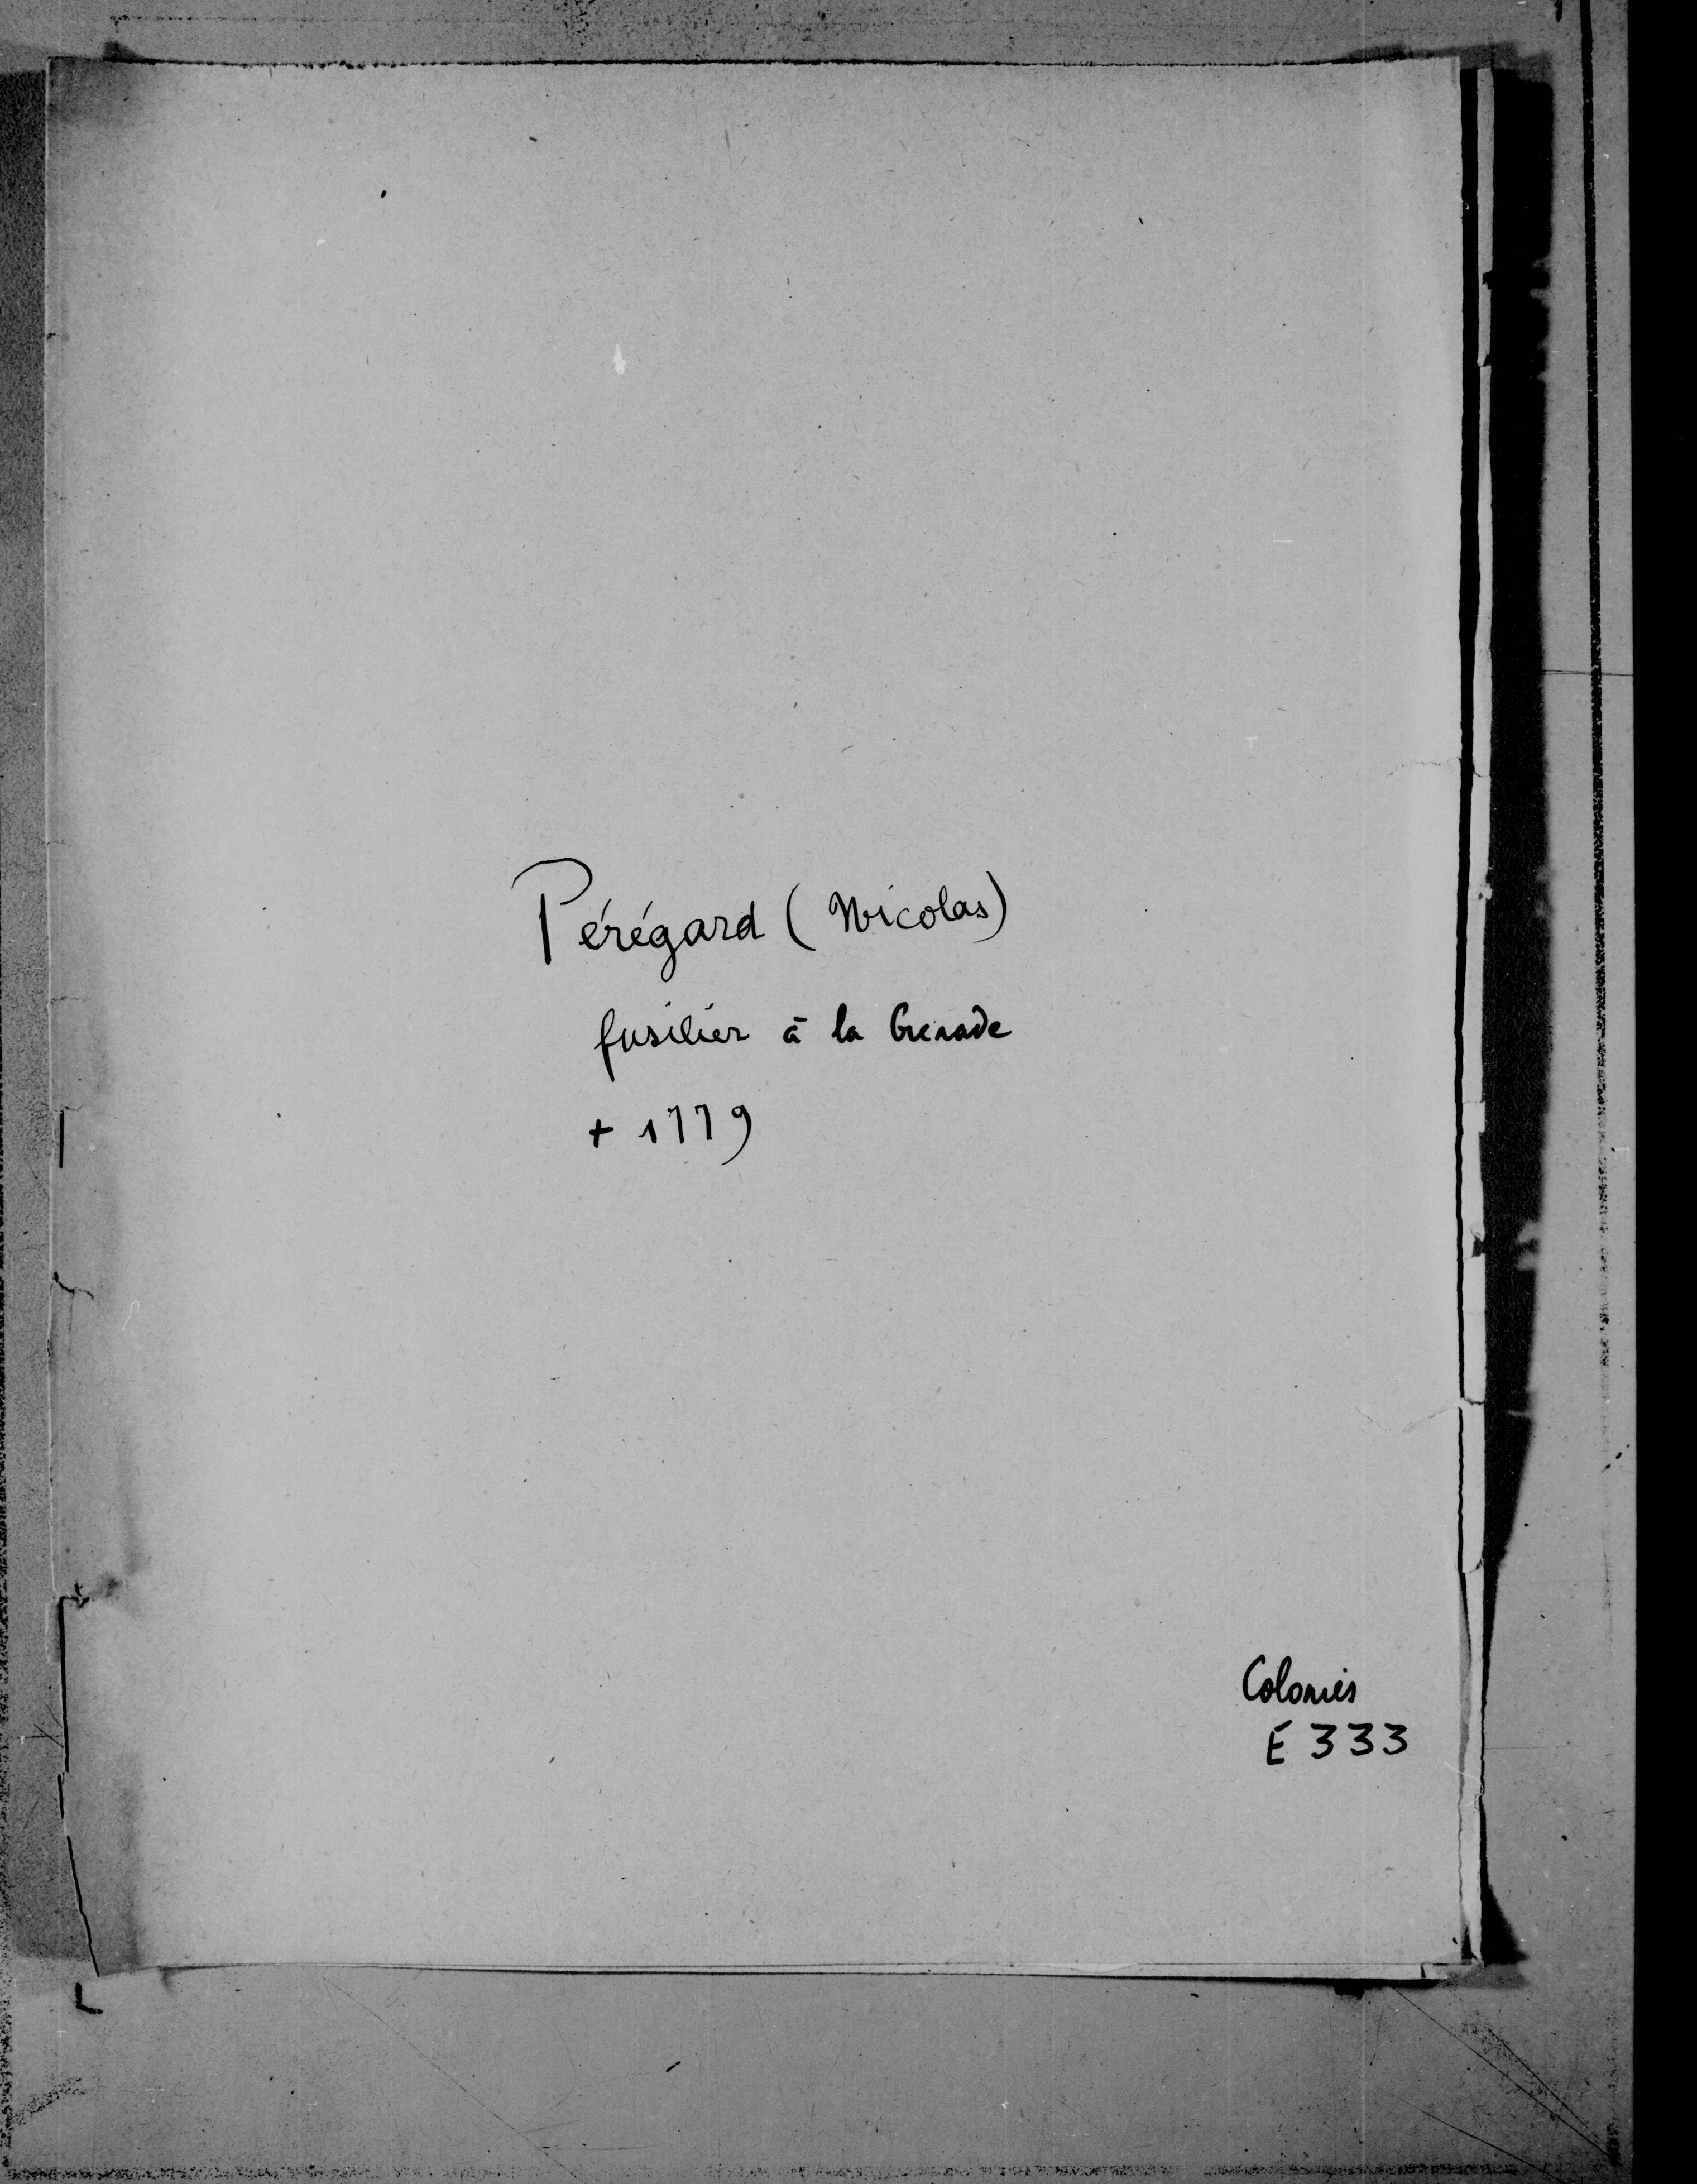 Pérégard (Nicolas)
fusilier à la Grenade
+ 1779
Colonies
E 333